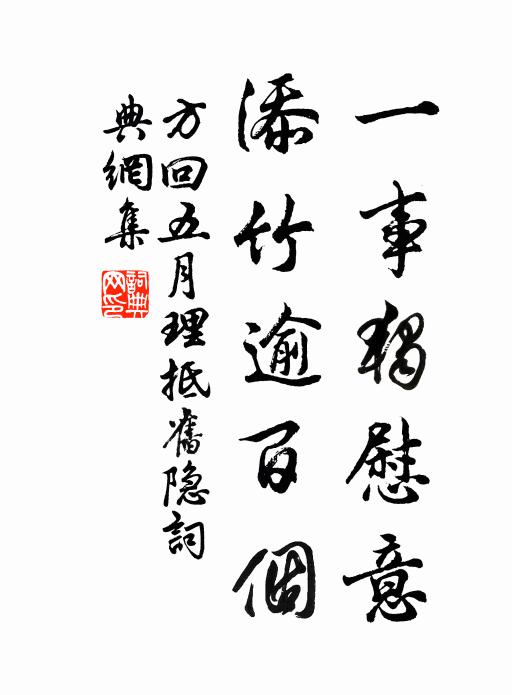 一事獨慰意
添竹逾百個
方回五月理抵舊隐詞
典網集
詞典網印